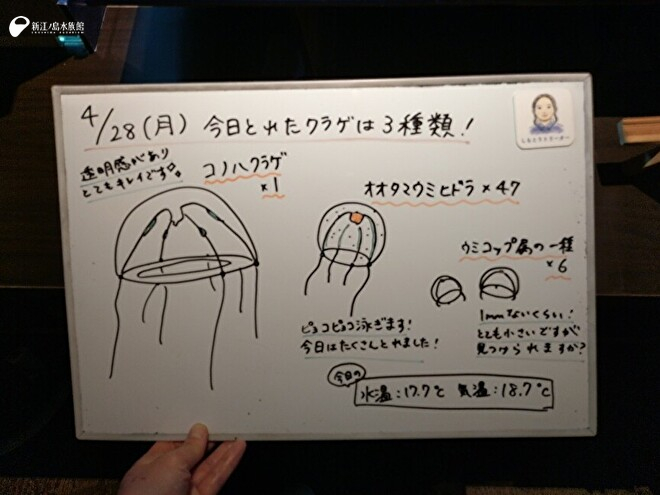 新江ノ島水族館
ENOSHIMA AQUARIUM
4/28(月) 今日とれたクラゲは3種類!
透明感があり
とてもキレイです。
コノハクラゲ
×1
オオタマウミヒドラ×47
ピョコピョコ泳ぎます!
今日はたくさんとれました!
ウミコップ属の一種
×6
1mmないくらい!
とても小さいですが
見つけられますか?
今日の
水温:17.7℃ 気温:18.7℃